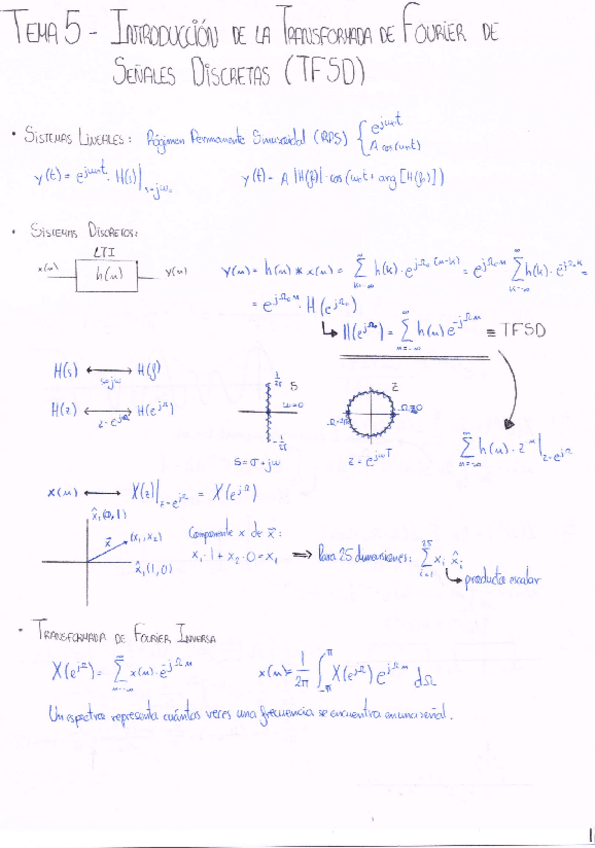 TEMA 5 - INTRODUCCIÓN DE LA TRANSFORMADA DE FOURIER DE
SEÑALES DISCRETAS (TFSD)
• SISTEMAS LINEALES: Régimen Permanente Sinusoidal (RPS) { e^{jω₀t}
A cos(ω₀t)
y(t) = e^{jω₀t} · H(s)|_{s=jω₀} y(t) = A |H(f₀)| · cos(ω₀t + arg[H(f₀)])
• SISTEMAS DISCRETOS:
LTI
x(n) h(n) y(n)
y(n) = h(n) * x(n) = ∑_{k=-∞}^{∞} h(k) · e^{jΩ₀(n-k)} = e^{jΩ₀n} ∑_{k=-∞}^{∞} h(k) · e^{-jΩ₀k} =
= e^{jΩ₀n} · H(e^{jΩ₀})
↳ H(e^{jΩ₀}) = ∑_{n=-∞}^{∞} h(n) e^{-jΩn} ≡ TFSD
H(s) ⟷ H(f)
s=jω
H(z) ⟷ H(e^{jΩ})
z=e^{jΩ}
S
ω=0
S = σ + jω
Z
Ω=0
z = e^{jωT}
∑_{n=-∞}^{∞} h(n) · z^{-n}|_{z=e^{jΩ}}
x(n) ⟷ X(z)|_{z=e^{jΩ}} = X(e^{jΩ})
x̂₁(0,1)
x⃗ (x₁,x₂)
x̂₁(1,0)
Componente x de x⃗:
x₁·1 + x₂·0 = x₁ ⟹ Para 25 dimensiones: ∑_{i=1}^{25} x_i x̂_i
↳ producto escalar
• TRANSFORMADA DE FOURIER INVERSA
X(e^{jΩ}) = ∑_{n=-∞}^{∞} x(n) · e^{-jΩn} x(n) = 1/2π ∫_{-π}^{π} X(e^{jΩ}) e^{jΩn} dΩ
Un espectro representa cuántas veces una frecuencia se encuentra en una señal.